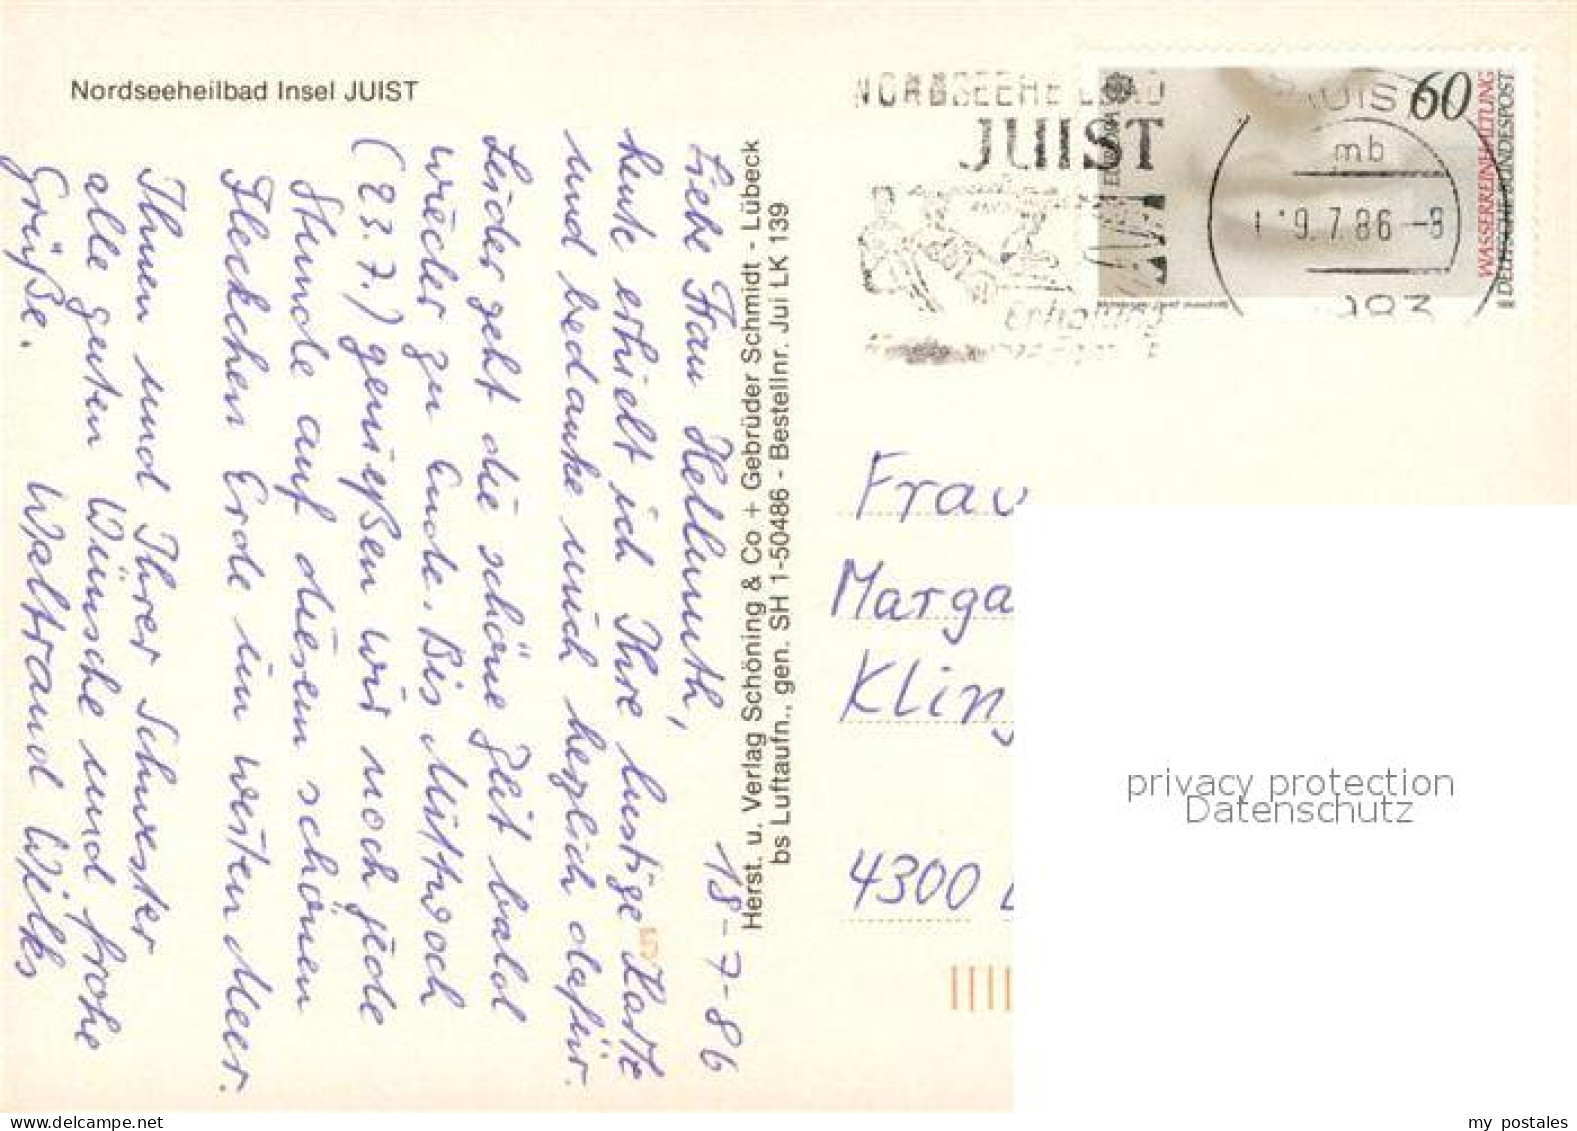 Nordseeheilbad Insel JUIST
18-7-86
Liebe Frau Hellmuth,
heute erhielt ich Ihre lustige Karte
und bedanke mich herzlich dafür.
Leider geht die schöne Zeit bald
wieder zu Ende. Bis Mittwoch
(23.7.) genießen wir noch jede
Stunde auf diesem schönen
Fleckchen Erde im weiten Meer.
Ihnen und Ihrer Schwester
alle guten Wünsche und frohe
Grüße. Waltraud Wilks
Herst. u. Verlag Schöning & Co + Gebrüder Schmidt - Lübeck
bs Luftaufn., gen. SH 1-50486 - Bestellnr. Jui LK 139
NORDSEEHEILBAD
JUIST
Erholung
EUROPA
60
WASSERREINHALTUNG
DEUTSCHE BUNDESPOST
JUIST
mb
19.7.86-8
2983
Frau
Marga
Kling
4300
privacy protection
Datenschutz
my postales
www.delcampe.net